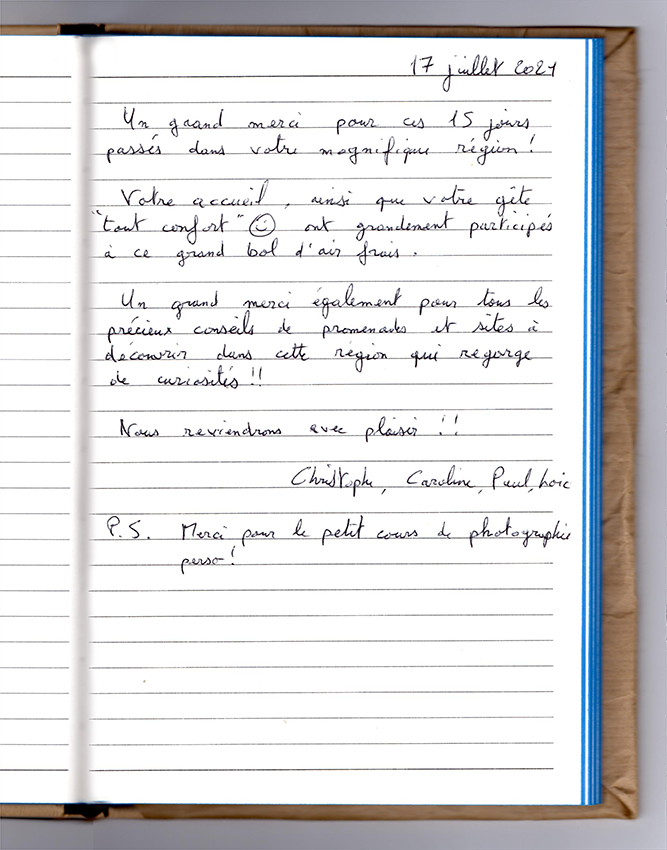 17 juillet 2021
Un grand merci pour ces 15 jours
passés dans votre magnifique région !
Votre accueil, ainsi que votre gîte
"tout confort" ☺ ont grandement participés
à ce grand bol d'air frais.
Un grand merci également pour tous les
précieux conseils de promenades et sites à
découvrir dans cette région qui regorge
de curiosités !!
Nous reviendrons avec plaisir !!
Christophe, Caroline, Paul, Loïc
P.S. Merci pour le petit cours de photographie
perso !